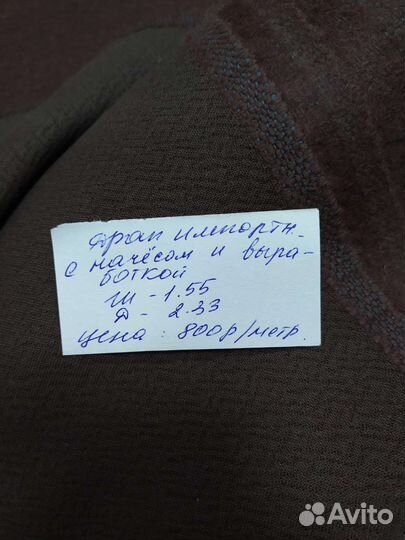 драп импортн.
с начёсом и выра-
боткой
Ш - 1.55
Д - 2.33
цена: 800р/метр.
Avito